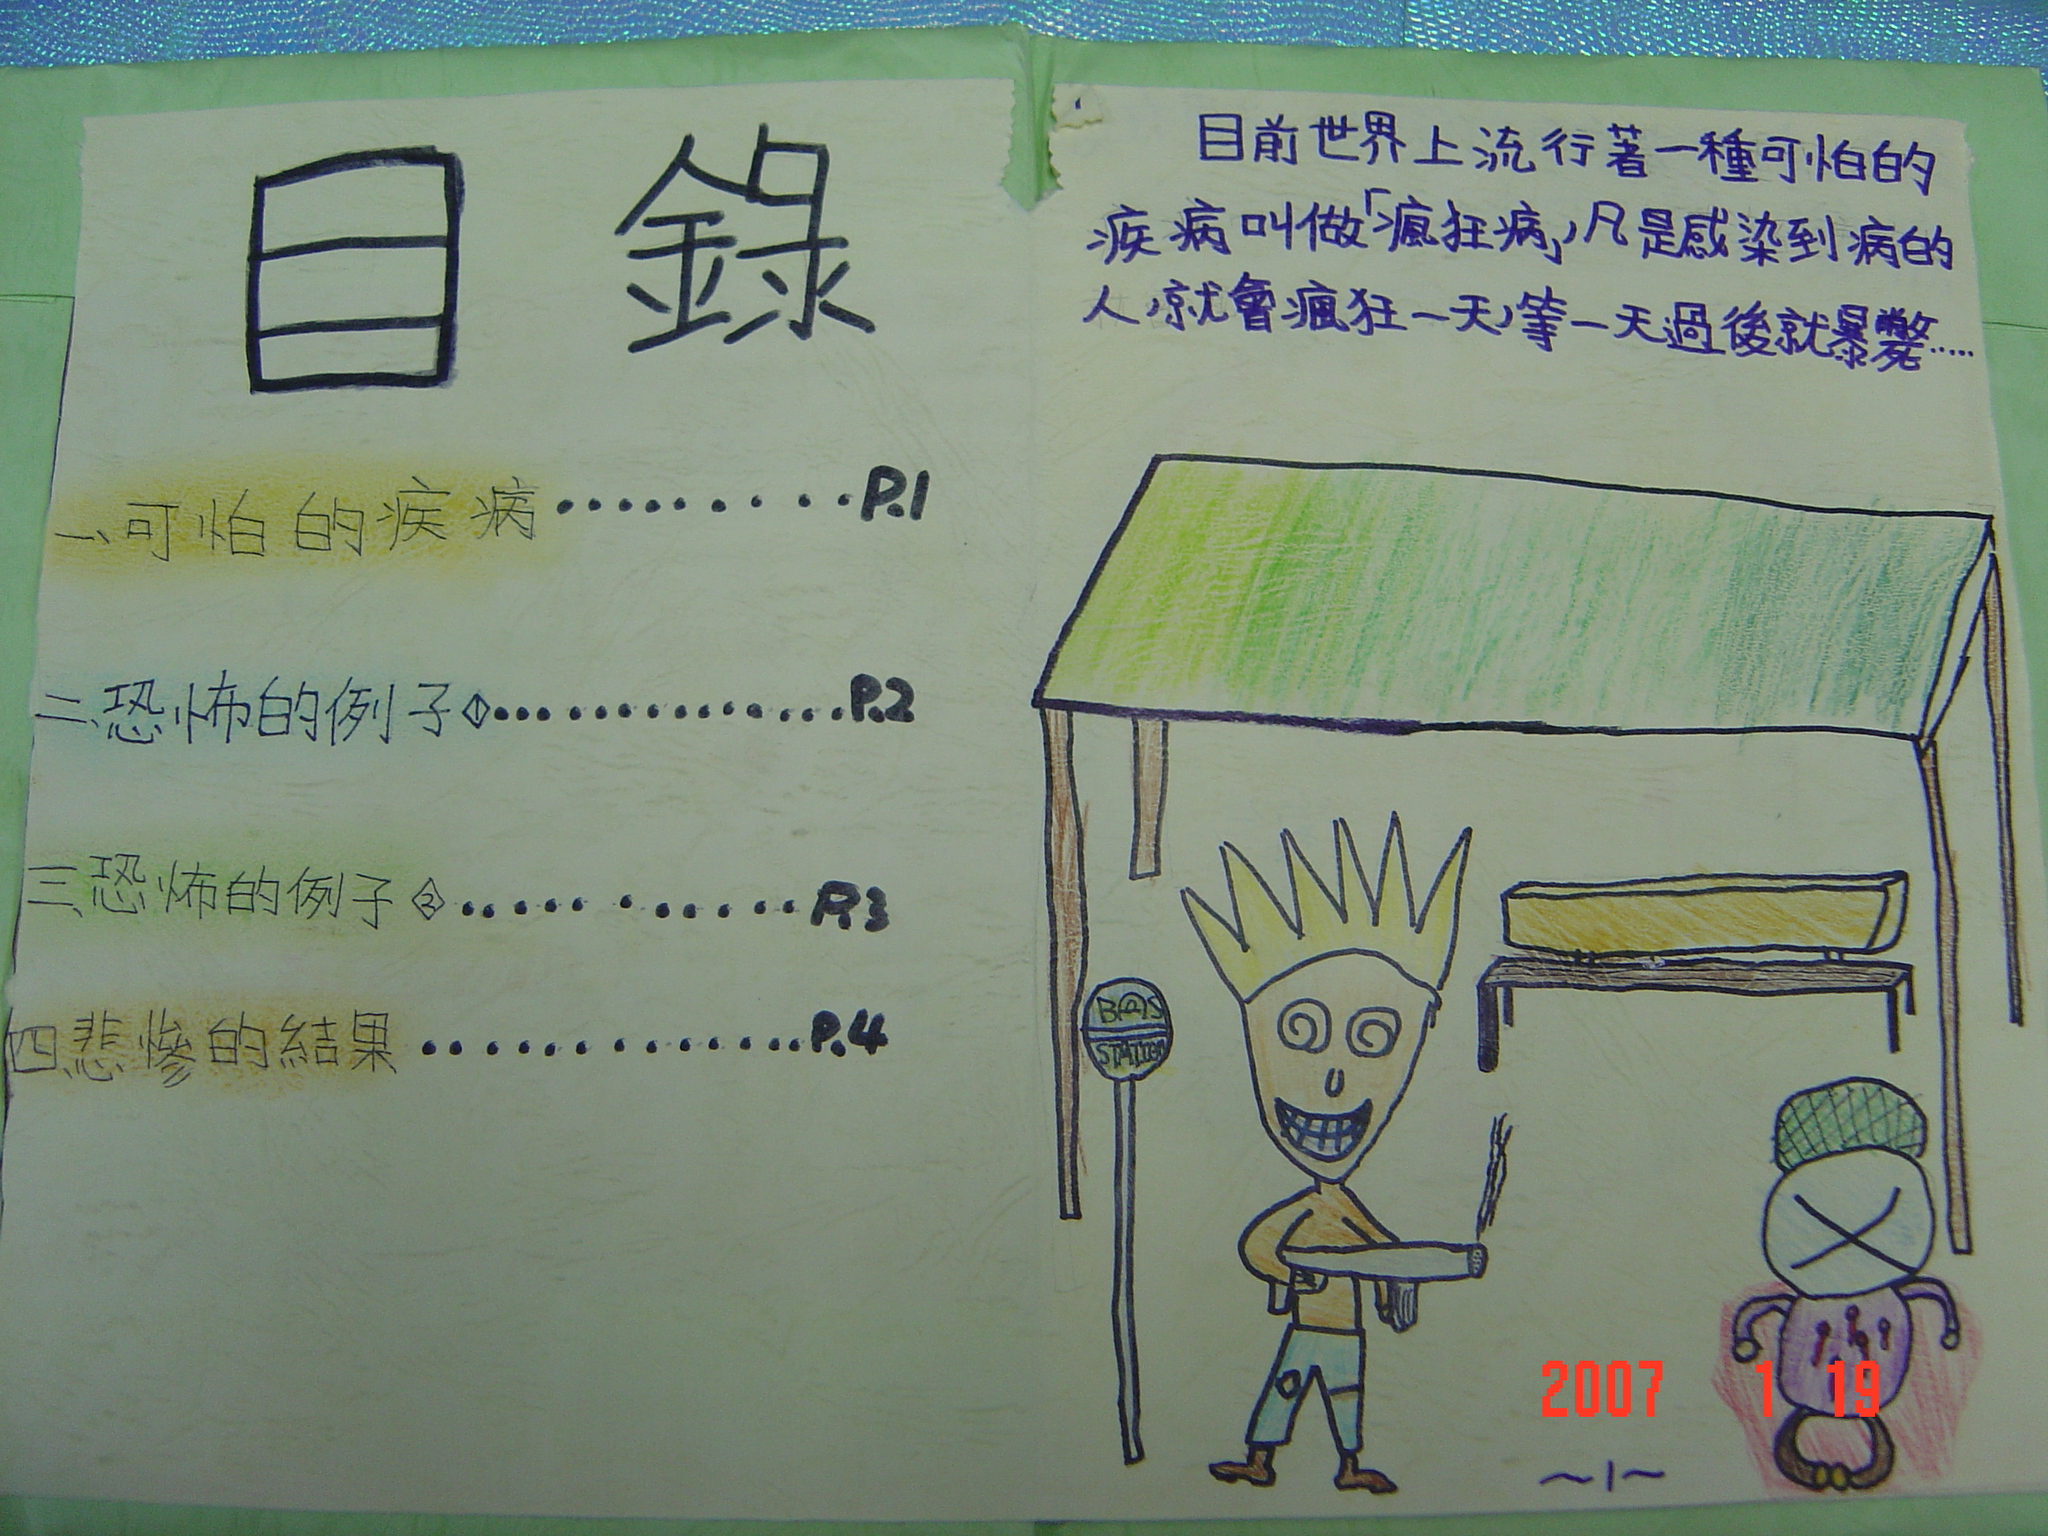 目錄
一、可怕的疾病‥‥‥‥‥P.1
二、恐怖的例子①‥‥‥‥‥P.2
三、恐怖的例子②‥‥‥‥‥P.3
四、悲慘的結果‥‥‥‥‥P.4
目前世界上流行著一種可怕的
疾病叫做「瘋狂病」,凡是感染到病的
人,就會瘋狂一天,等一天過後就暴斃.....
STATION
2007 1 19
~1~